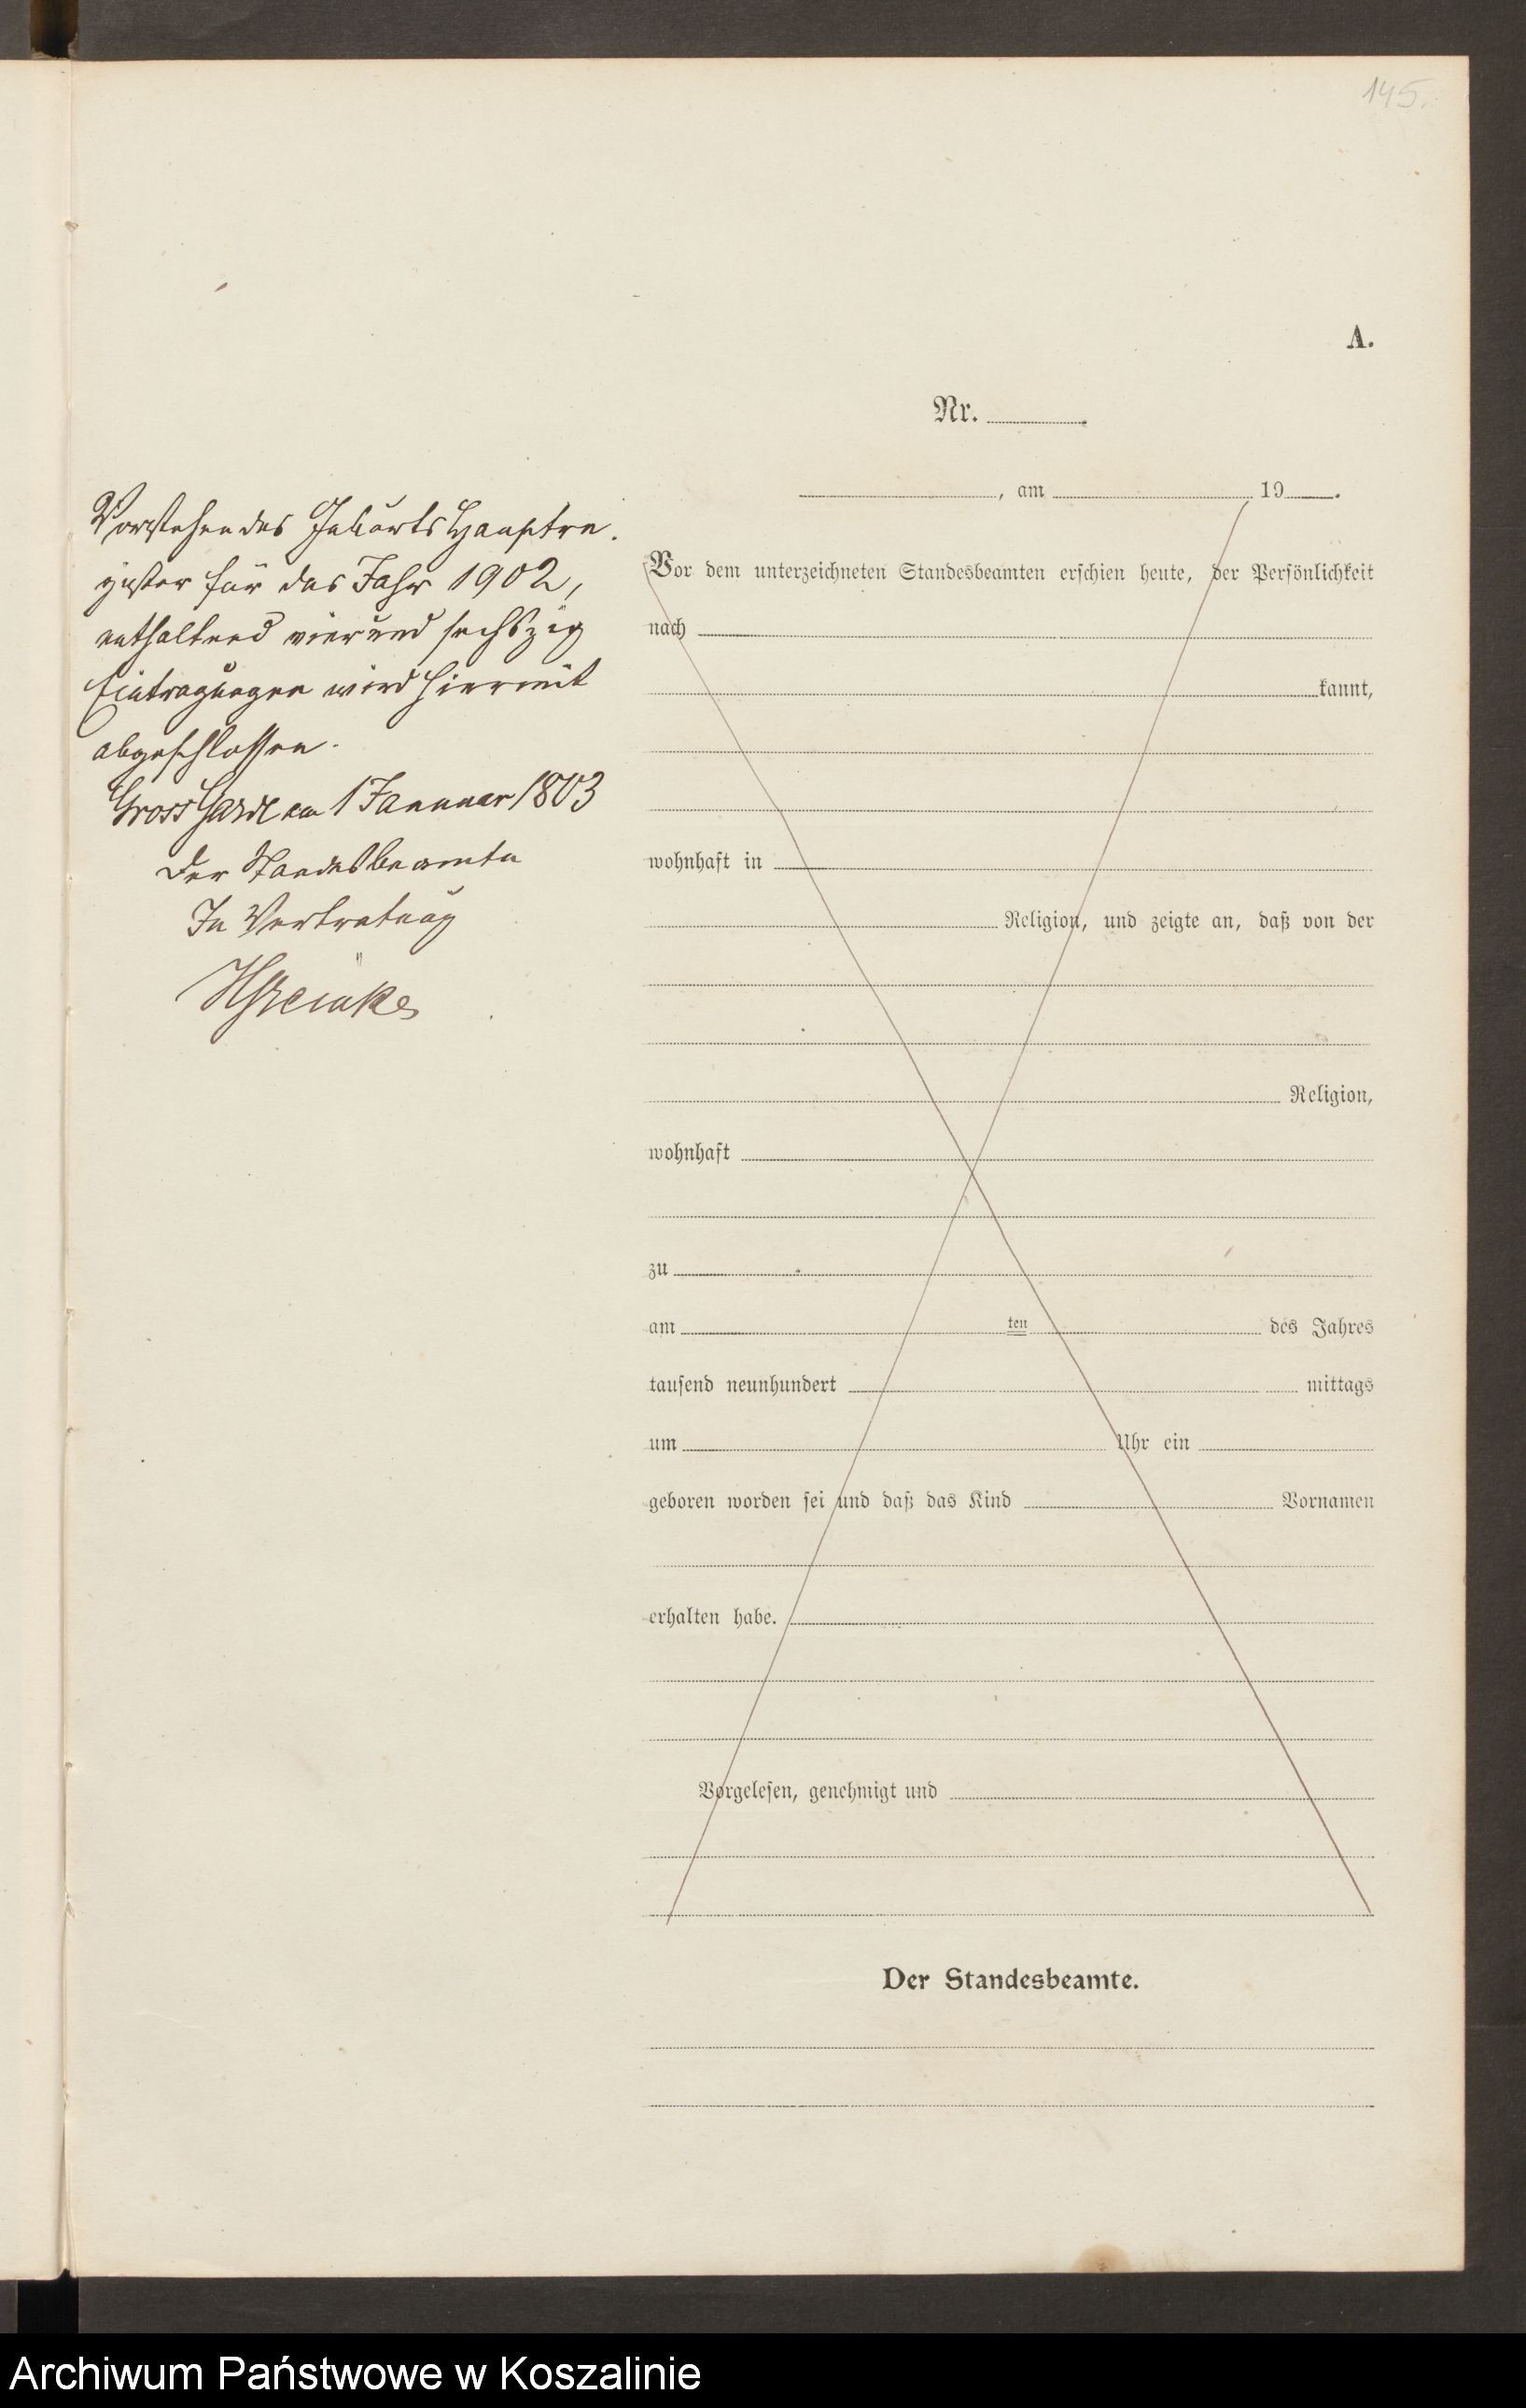 145.
A.
Nr.
, am 19 .
Vorstehendes Geburts Hauptre.
gister für das Jahr 1902,
enthaltend vierundsechszig
Eintragungen wird hiermit
abgeschlossen.
Gross Garde am 1 Januar 1803
Der Standesbeamte
In Vertretung
Vor dem unterzeichneten Standesbeamten erschien heute, der Persönlichkeit
nach
kannt,
wohnhaft in
Religion, und zeigte an, daß von der
Religion,
wohnhaft
zu
am ten des Jahres
tausend neunhundert mittags
um Uhr ein
geboren worden sei und daß das Kind Vornamen
erhalten habe.
Vorgelesen, genehmigt und
Der Standesbeamte.
Archiwum Państwowe w Koszalinie